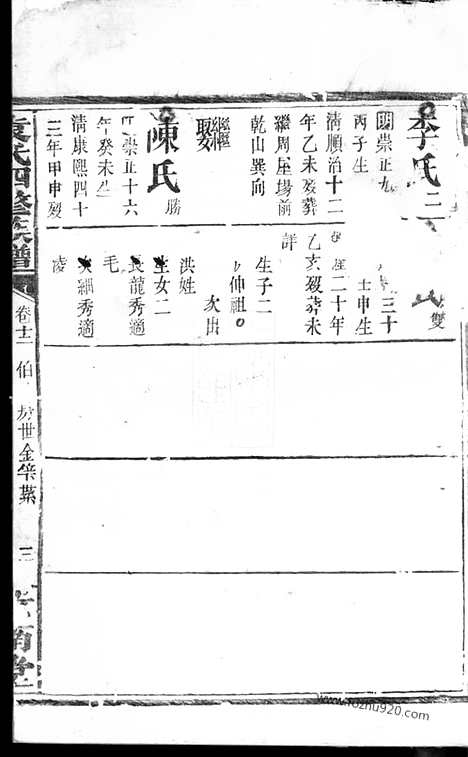 李氏三
明崇正九
丙子生
清順治十二
年乙未歿葬
繼周屋場前
乾山巽向
繼娶
陳氏 勝
崇正十六
年癸未生
清康熙四十
三年甲申歿
雙
三十
壬申生
二十年
乙亥歿葬未
詳
生子二
伸祖
次出
洪姓
生女二
長龍秀適
毛
次細秀適
凌
袁氏四修族譜
卷十二
伯
世金榮業
三
www.fozhu920.com